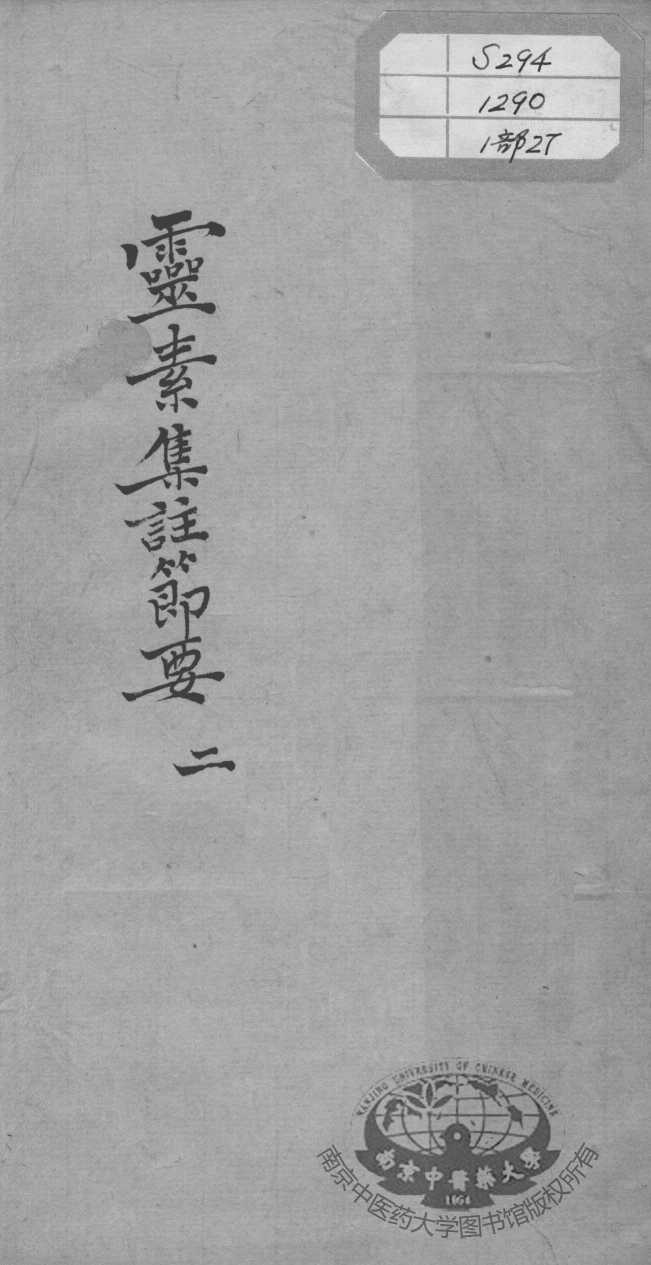 S294
1290
1部2T
靈素集註節要 二
NANJING UNIVERSITY OF CHINESE MEDICINE
南京中醫药大學
1954
南京中医药大学图书馆版权所有